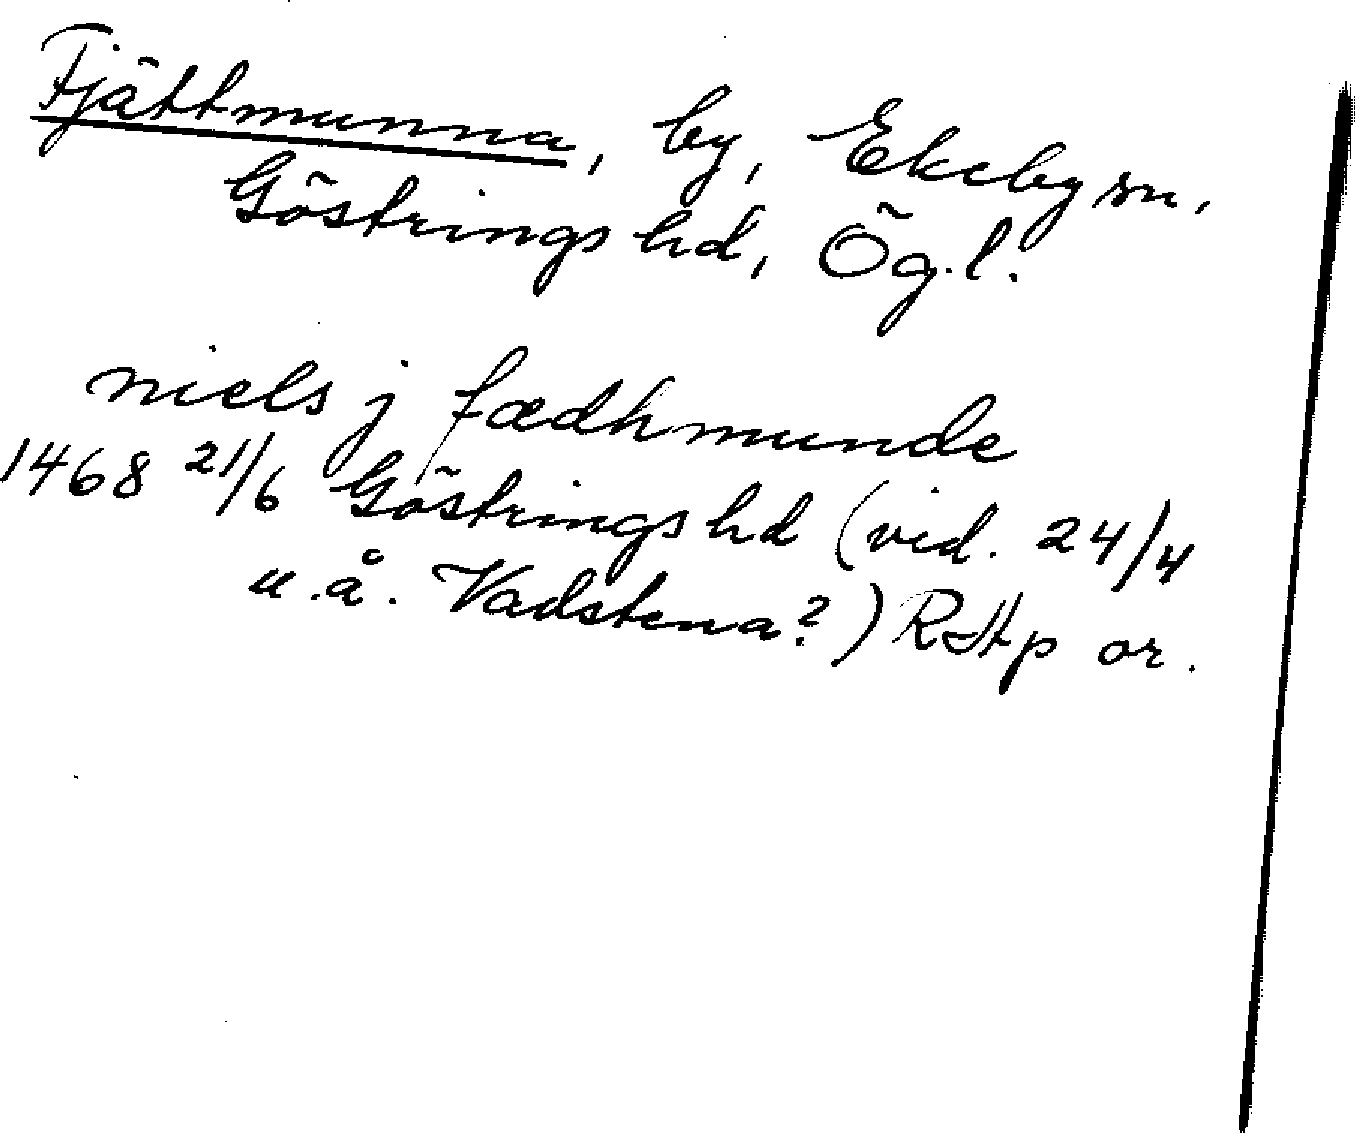 Fjättmunna, by, Ekeby sn,
Göstrings hd, Ög.l.
niels j fædhmunde
1468 21/6 Göstrings hd (vid. 24/4
u.å. Vadstena?) RAp or.